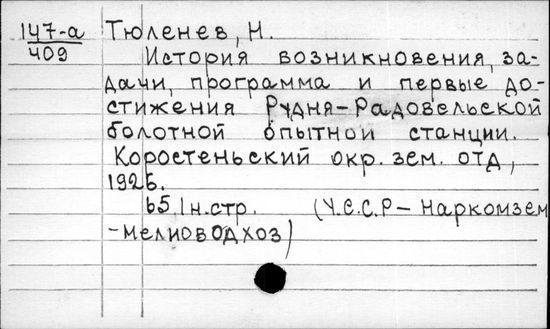 147-а Тюленев, Н.
409
История возникновения, за-
дачи, программа и первые до-
стижения Рудня-Радовельской
болотной опытной станции.
Коростеньский окр. зем. отд,
1926.
65, 1 н.стр. (У.С.С.Р – Наркомзем
-мелиоводхоз)